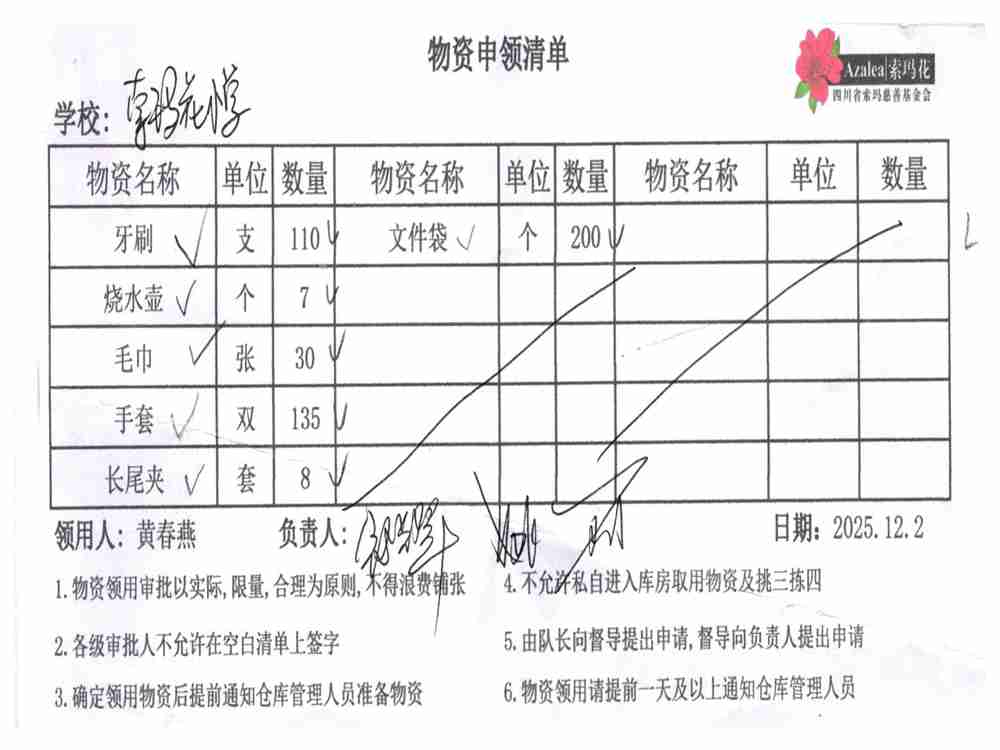 物资申领清单
Azalea 索玛花
四川省索玛慈善基金会
学校: 索玛花小学
物资名称 单位 数量 物资名称 单位 数量 物资名称 单位 数量
牙刷 支 110 文件袋 个 200
烧水壶 个 7
毛巾 张 30
手套 双 135
长尾夹 套 8
领用人: 黄春燕 负责人: 日期: 2025.12.2
1.物资领用审批以实际,限量,合理为原则,不得浪费铺张
4.不允许私自进入库房取用物资及挑三拣四
2.各级审批人不允许在空白清单上签字
5.由队长向督导提出申请,督导向负责人提出申请
3.确定领用物资后提前通知仓库管理人员准备物资
6.物资领用请提前一天及以上通知仓库管理人员